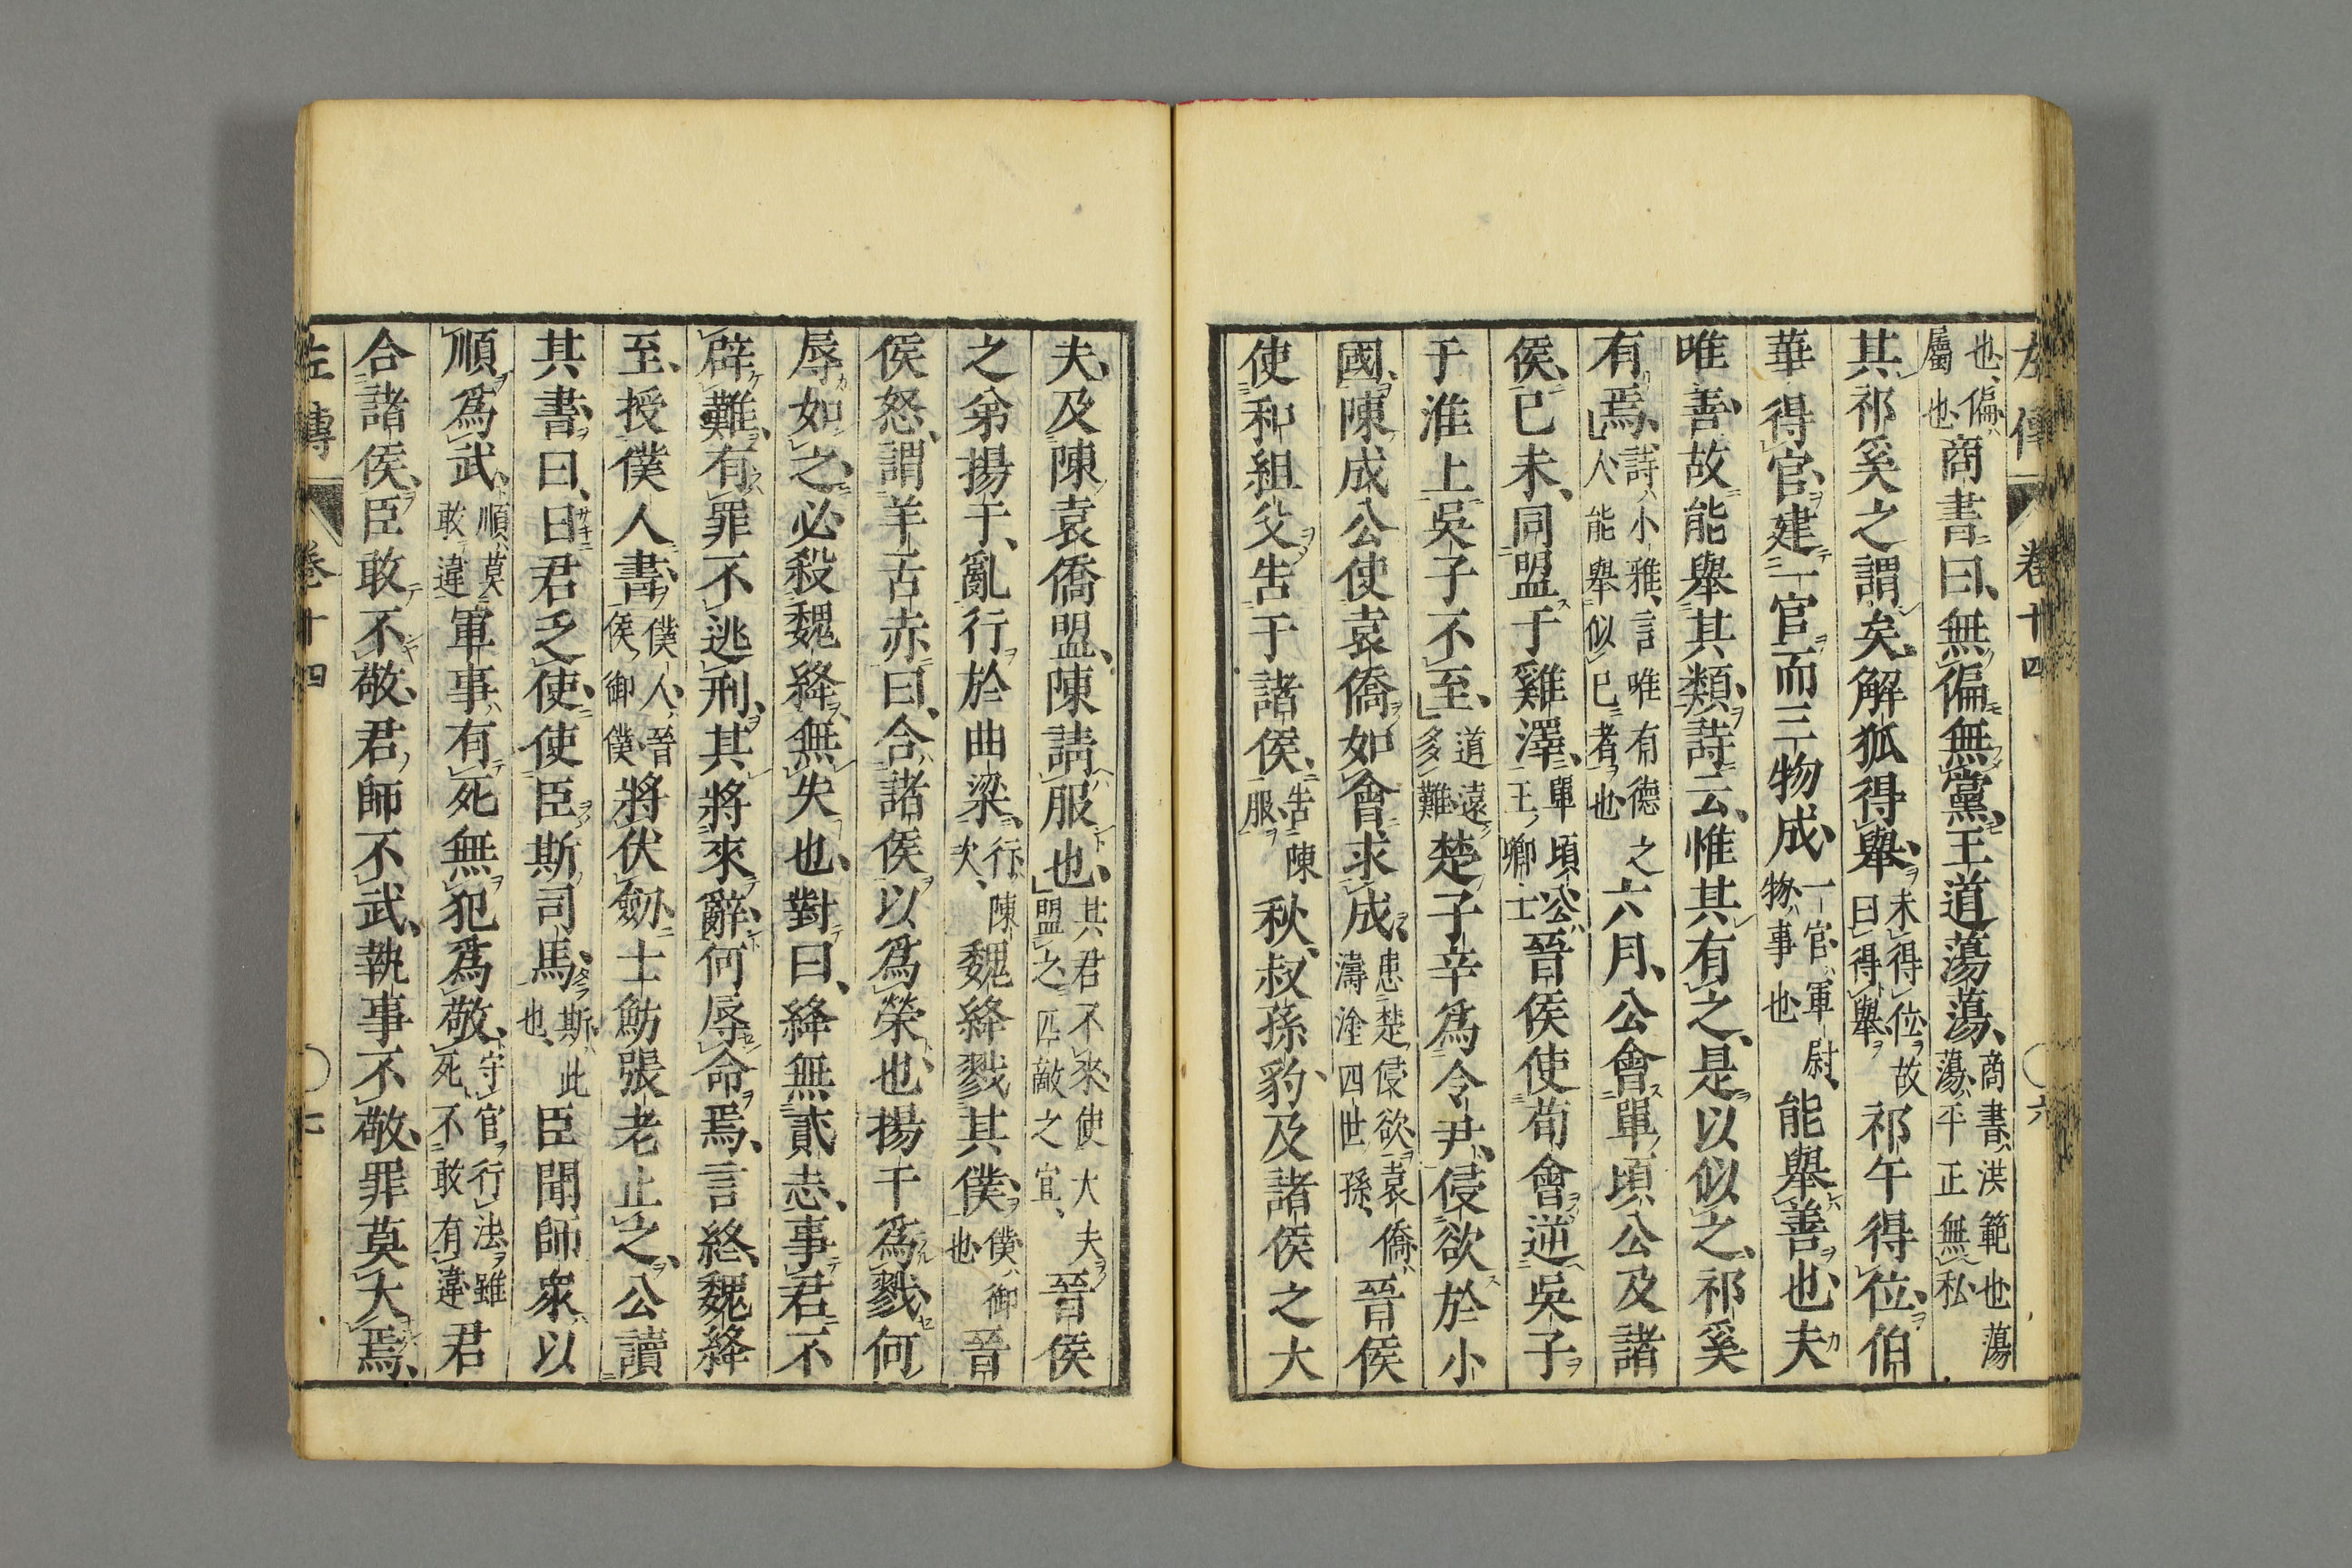 左傳 卷十四 〇六
也偏屬也商書曰無偏無黨王道蕩蕩商書洪範也蕩蕩平正無私
其祁奚之謂矣解狐得舉未得位故曰得舉祁午得位伯
華得官建一官而三物成一官軍尉物事也能舉善也夫
唯善故能舉其類詩云惟其有之是以似之祁奚
有焉詩小雅言唯有德之人能舉似己者也六月公會單頃公及諸
侯己未同盟于雞澤單頃公王卿士晉侯使荀會逆吳子
于淮上吳子不至道遠多難楚子辛爲令尹侵欲於小
國陳成公使袁僑如會求成患楚侵欲袁僑濤塗四世孫晉侯
使和組父告于諸侯告陳服秋叔孫豹及諸侯之大
夫及陳袁僑盟陳請服也其君不來使大夫盟之匹敵之宜晉侯
之弟揚干亂行於曲梁行陳次魏絳戮其僕僕御也晉
侯怒謂羊舌赤曰合諸侯以爲榮也揚干爲戮何
辱如之必殺魏絳無失也對曰絳無貳志事君不
辟難有罪不逃刑其將來辭何辱命焉言終魏絳
至授僕人書僕人晉侯御僕將伏劒士魴張老止之公讀
其書曰日君乏使使臣斯司馬斯此也臣聞師衆以
順爲武順莫敢違軍事有死無犯爲敬守官行法雖死不敢有違君
合諸侯臣敢不敬君師不武執事不敬罪莫大焉
左傳 卷十四 〇七